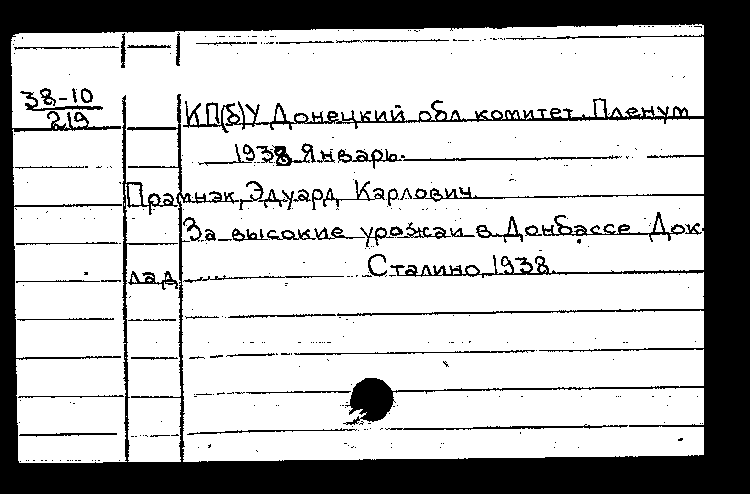 38-10
219
КП(б)У Донецкий обл. комитет. Пленум
1938 Январь.
Прамнэк, Эдуард Карлович.
За высокие урожаи в Донбассе. Док-
лад ....
Сталино, 1938.